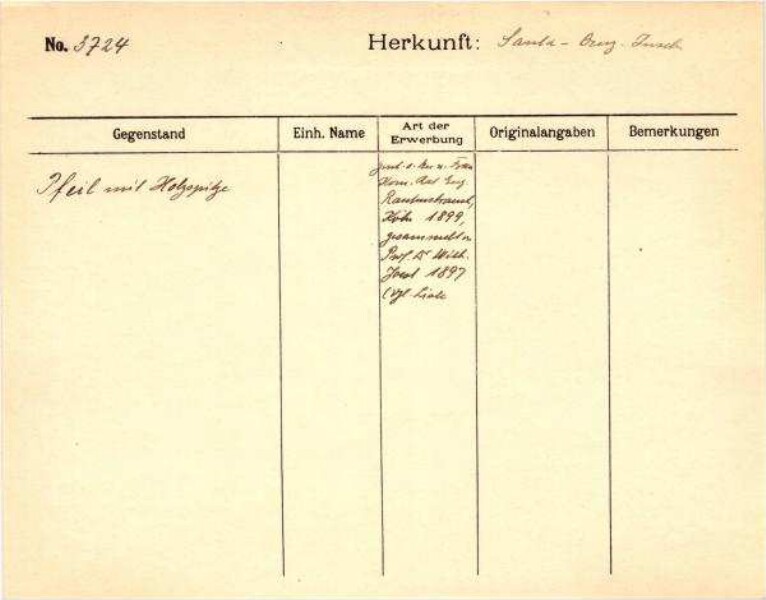 No. 3724
Herkunft: Santa-Cruz-Inseln
Gegenstand
Einh. Name
Art der Erwerbung
Originalangaben
Bemerkungen
Pfeil mit Holzspitze
Gesch. d. Herrn u. Frau
Kom. Rat Eug.
Rautenstrauch,
Köln 1899,
gesammelt v.
Prof. Dr Wilh.
Joest 1897
(vgl. Liste